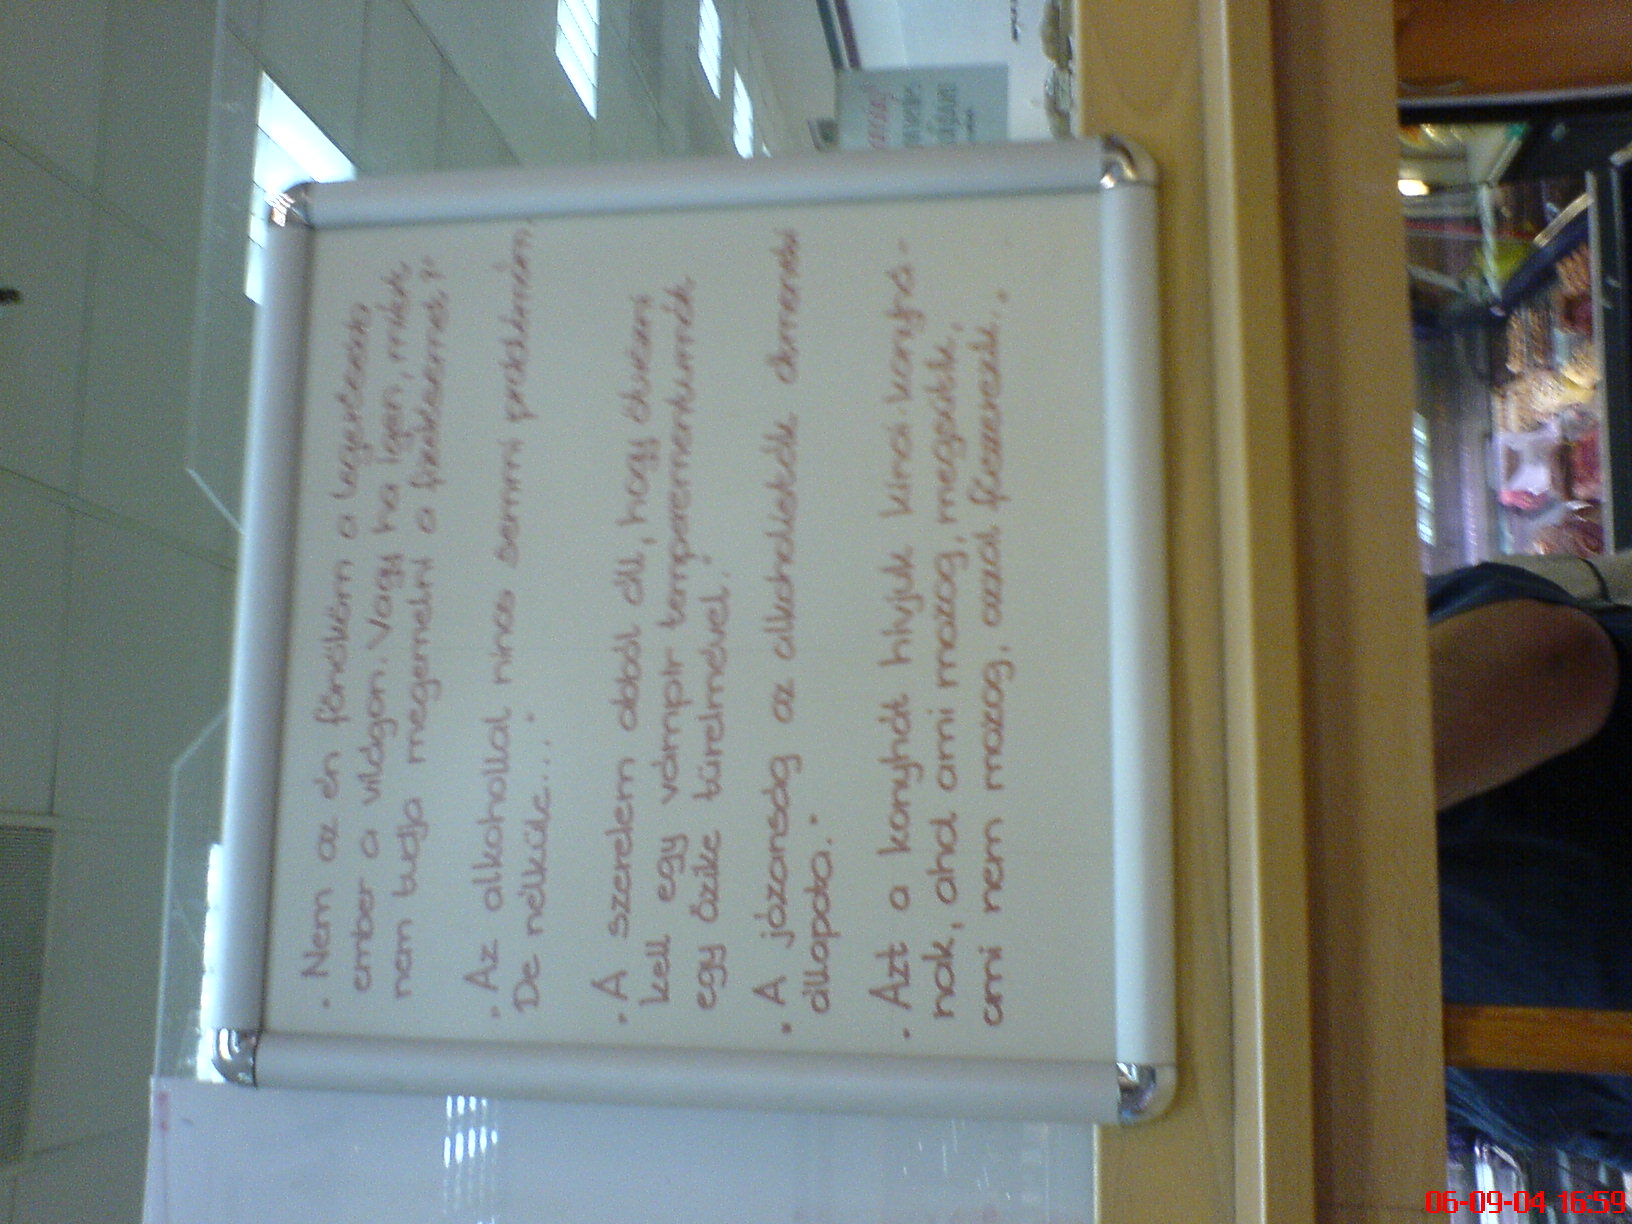 • Nem az én főnököm a legerősebb
ember a világon. Vagy ha igen, miért
nem tudja megemelni a fizetésemet?•
• Az alkohollal nincs semmi problémám,
De nélküle....•
• A szerelem abból áll, hogy ötvözni
kell egy vámpír temperamentumát
egy őzike türelmével.•
• A józanság az alkoholisták átmeneti
állapota.•
• Azt a konyhát hívjuk kínai konyhá-
nak, ahol ami mozog, megsütik,
ami nem mozog, azzal fűszerezik.•
06-09-04 16:59